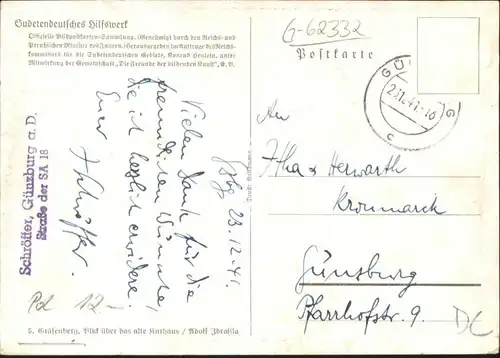 Sudetendeutsches Hilfswerk
Offizielle Bildpostkarten-Sammlung. (Genehmigt durch den Reichs- und
Preußischen Minister des Innern. Herausgegeben im Auftrage des Reichs-
kommissars für die Sudetendeutschen Gebiete, Konrad Henlein, unter
Mitwirkung der Gemeinschaft „Die Freunde der bildenden Kunst", E. V.
G-62332
Postkarte
GÜ G
23.12.41.-16
c
Gzbg 23.12.41.
Vielen Dank für die
freundlichen Wünsche,
die ich herzlich erwidere.
Euer
Schröffer.
Schröffer, Günzburg a. D.
Straße der SA 18
An
Herwarth
Kronmarck
Günsburg
Pfarrhofstr. 9.
DC
12-
5. Gräfenberg, Blick über das alte Kurhaus / Adolf Zdrasila